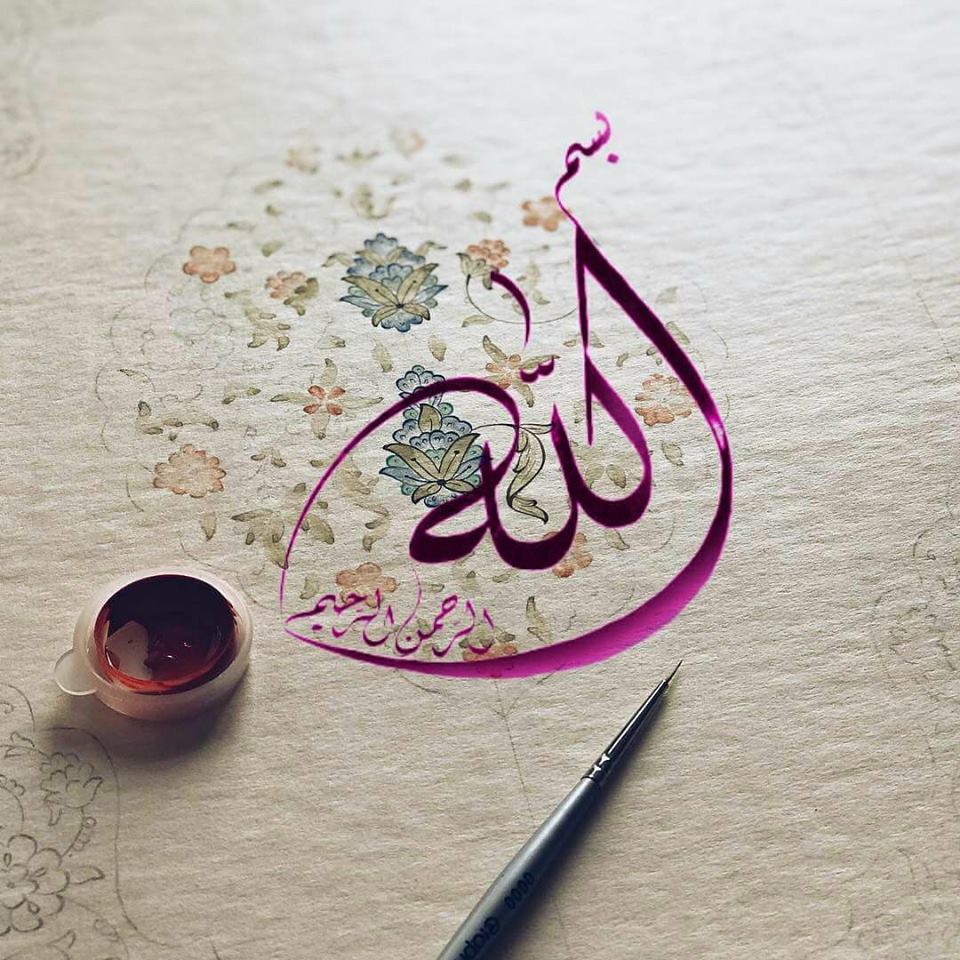 بسم
الله
الرحمن الرحيم
0000